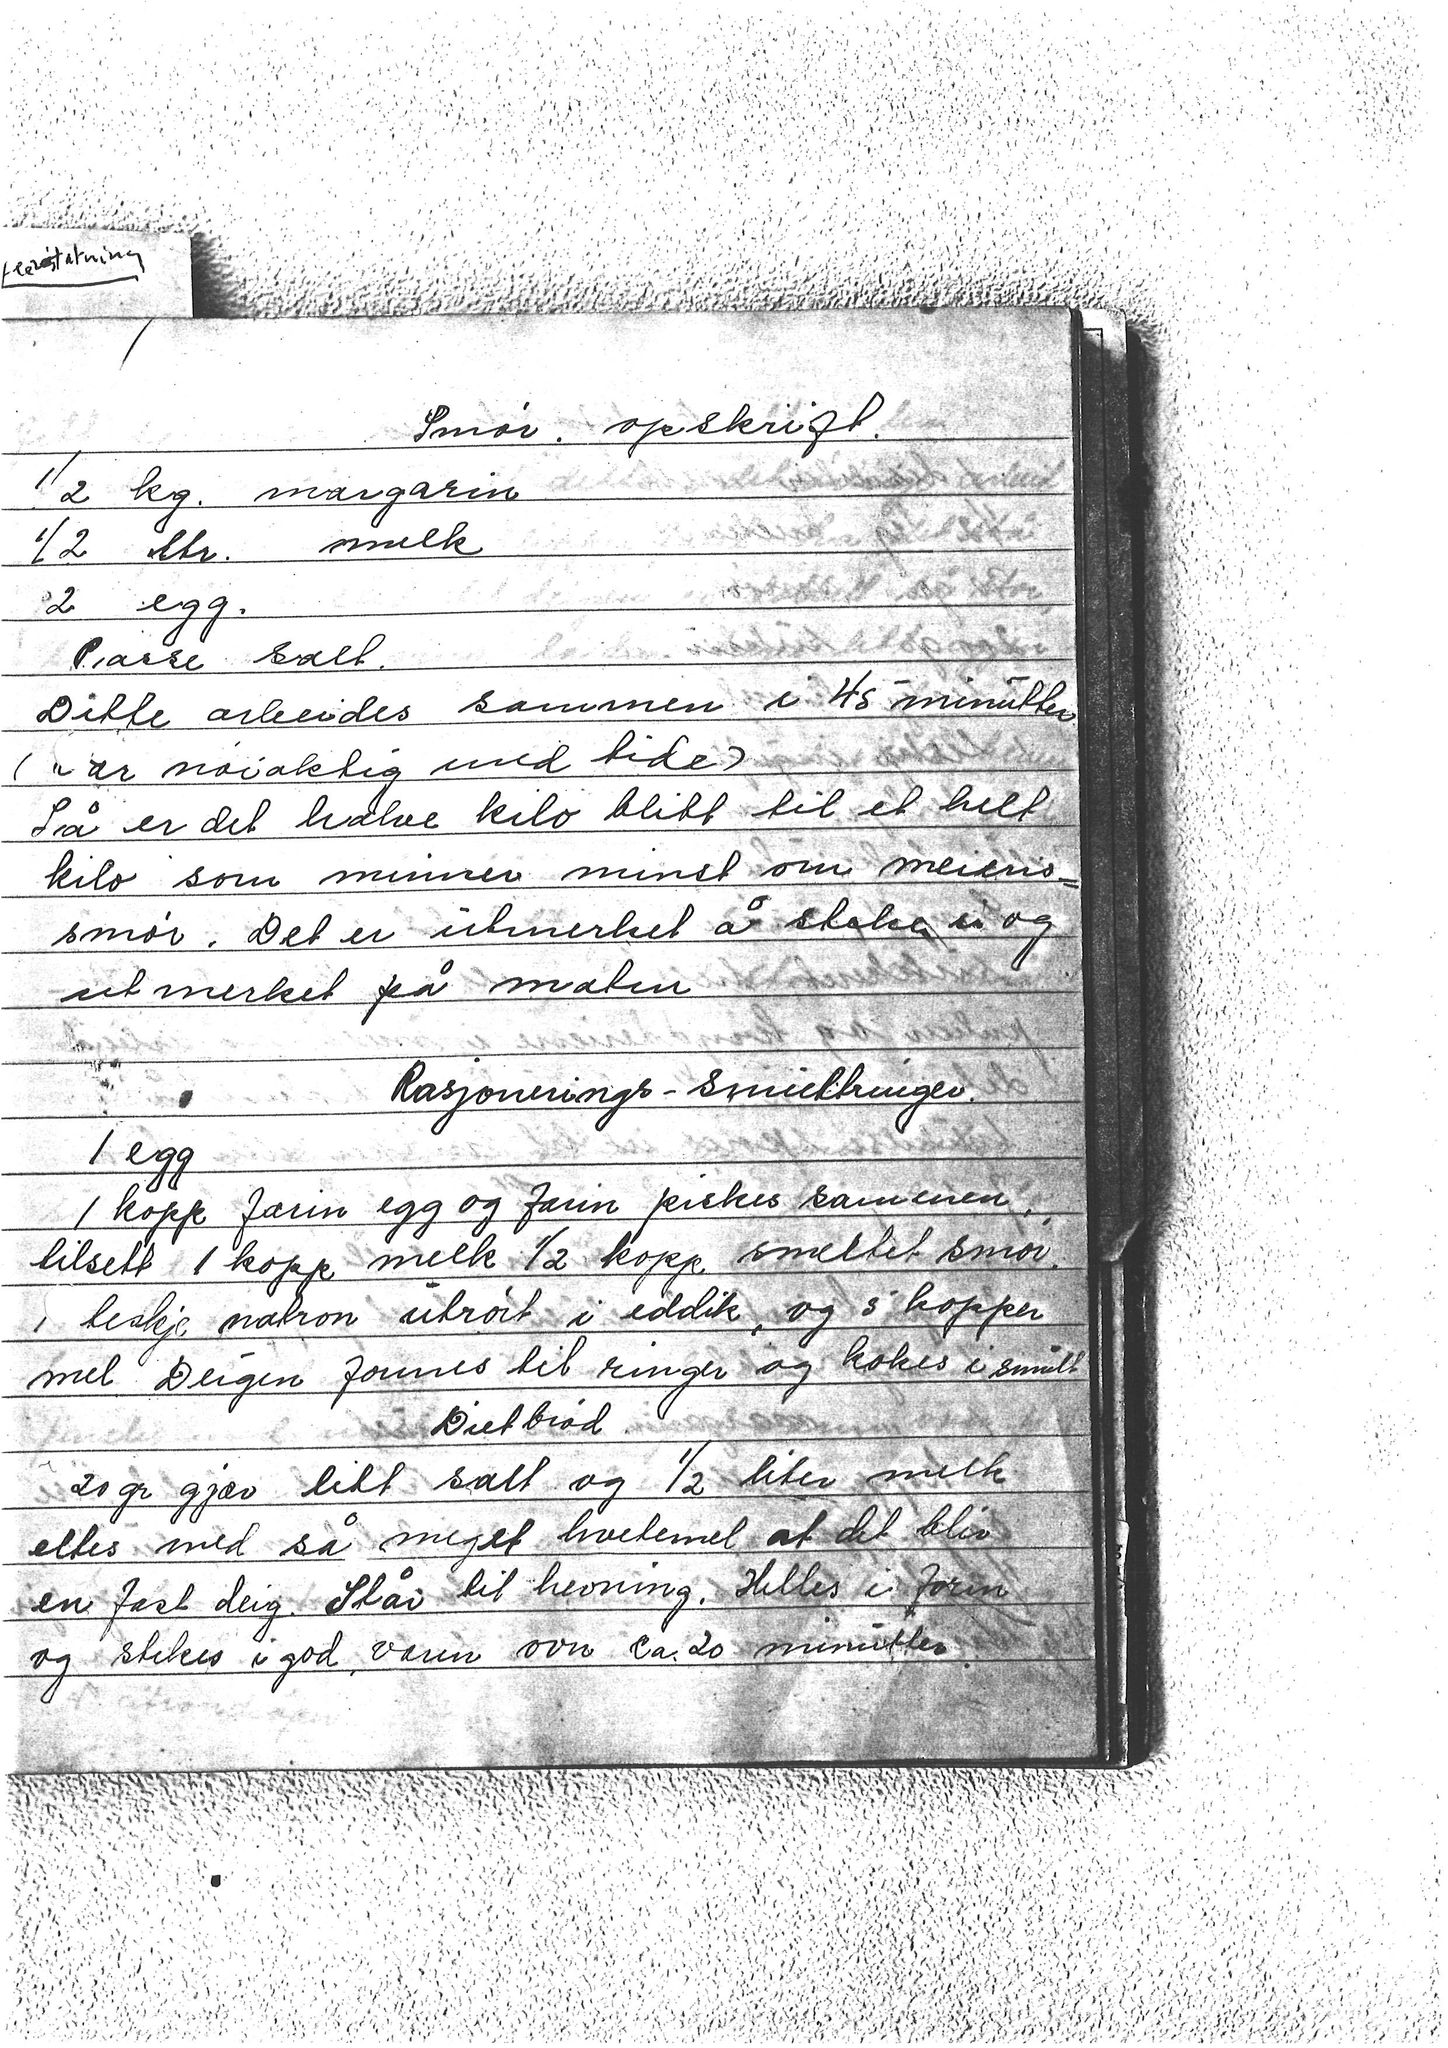 Smør. opskrift.
1/2 kg. margarin
1/2 ltr. melk
2 egg.
Passe salt.
Dette arbeides sammen i 45 minutter
( vær nøiaktig med tide)
Så er det halve kilo blitt til et helt
kilo som minner minst om meieris=
smør. Det er utmerket å steke i og
utmerket på maten
Rasjonerings-smultringer.
1 egg
1 kopp farin egg og farin piskes sammen,
tilsett 1 kopp melk 1/2 kopp smeltet smør.
1 teskje natron utrørt i eddik, og 5 kopper
mel Deigen formes til ringer og kokes i smult
Dietbrød
20 gr gjær litt salt og 1/2 liter melk
eltes med så meget hvetemel at det blir
en fast deig. Står til hevning. Helles i form
og stekes i god, varm ovn ca. 20 minutter